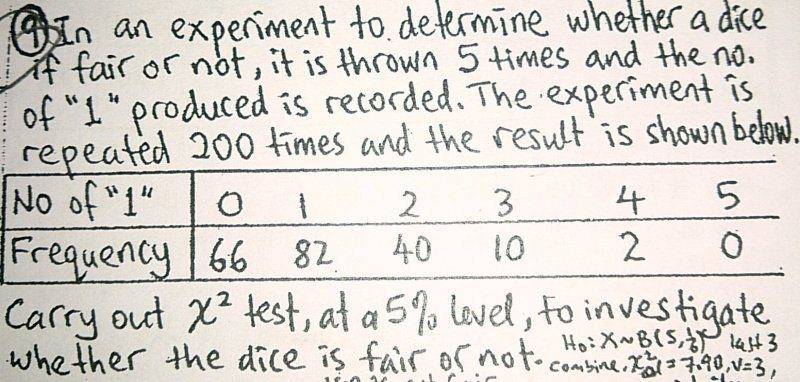 9 In an experiment to determine whether a dice
if fair or not, it is thrown 5 times and the no.
of "1" produced is recorded. The experiment is
repeated 200 times and the result is shown below.
No of "1" 0 1 2 3 4 5
Frequency 66 82 40 10 2 0
Carry out χ² test, at a 5% level, to investigate
whether the dice is fair or not.
H₀: X~B(5, last 3
combine, = 7.90, ν=3,